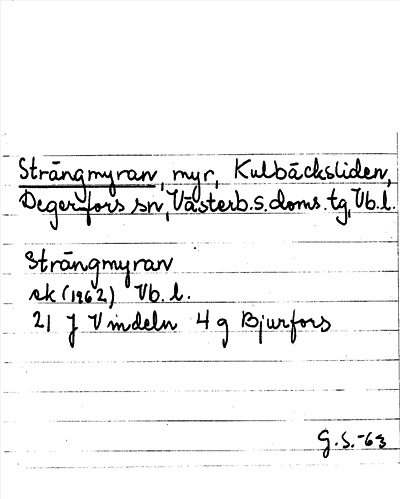 Strängmyran, myr, Kulbäcksliden,
Degerfors sn, Västerb.s.doms.tg, Vb.l.
Strängmyran
ek (1962) Vb.l.
21 J Vindeln 4 g Bjurfors
G.S.-63